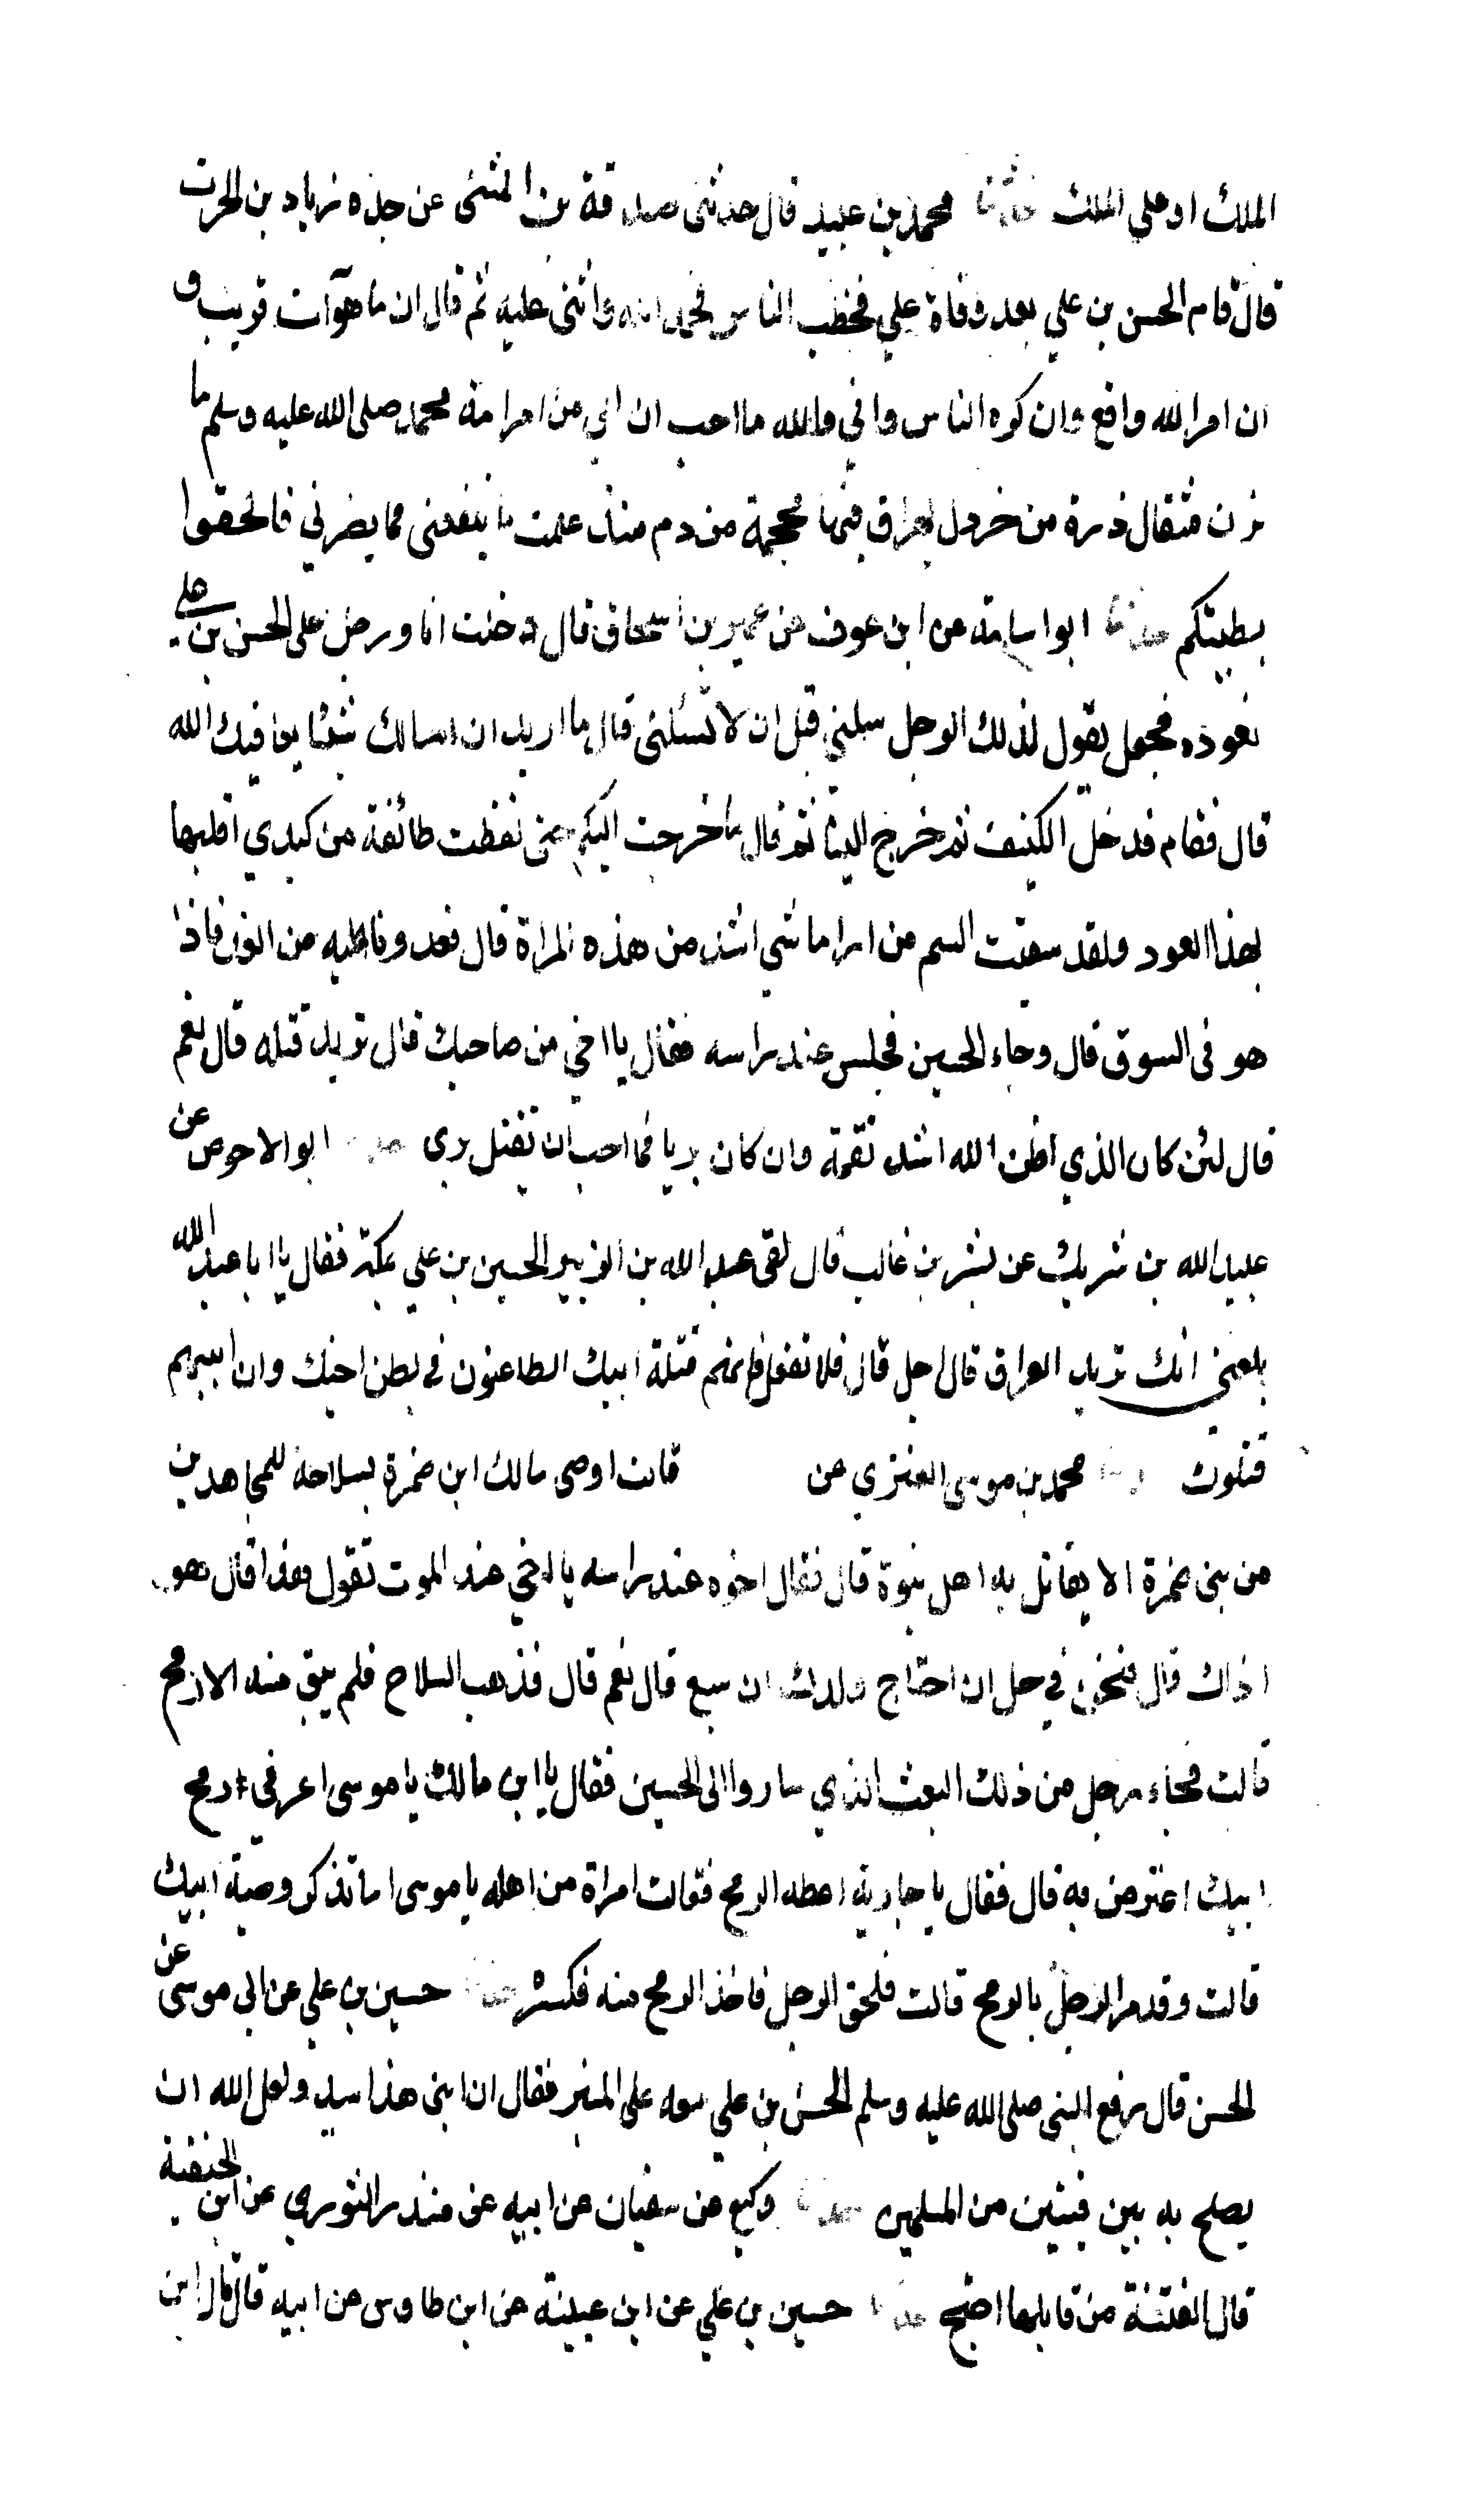 الملك او على الملك حدثنا محمد بن عبيد قال حدثنى صدقة بن المثنى عن جده رياد بن الحرث
قال قام الحسن بن علي بعد وفاة علي فخطب الناس فحمد الله واثنى عليه ثم قال ان ما هو آت قريب و
ان امر الله واقع وان كره الناس واني والله ما احب ان الي من امر امة محمد صلى الله عليه وسلم ما
يزن مثقال ذرة من خردل يهراق فيها محجمة من دم منذ علمت ما ينفعنى مما يضرني فالحقوا
بطيتكم حدثنا ابو اسامة عن ابن عوف عن عمير بن اسحاق قال دخلت انا ورجل على الحسن بن علي
نعوذه فجعل يقول لذلك الرجل سلني قبل ان لا تسئلنى قال ما اريد ان اسالك شيئا يعافيك الله
قال فقام فدخل الكنيف ثم خرج الينا ثم قال ما خرجت اليكم حتى لفظت طائفة من كبدي اقلبها
بهذا العود ولقد سقيت السم مرارا ما شي اشد من هذه المراة قال فغدونا عليه من الغد فاذا
هو في السوق قال وجاء الحسين فجلس عند راسه فقال يا اخي من صاحبك قال تريد قتله قال نعم
قال لئن كان الذي اظن الله اشد نقمة وان كان بريا فما احب ان يقتل برى حدثنا ابو الاحوص عن
عبيد الله بن شريك عن بشر بن غالب قال لقى عبد الله بن الزبير الحسين بن علي بمكة فقال يا ابا عبد الله
بلغني انك تريد العراق قال اجل قال فلا تفعل فانهم قتلة ابيك الطاعنون في بطن اخيك وان اتيتهم
قتلوك حدثنا محمد بن موسى العنزي عن قالت اوصى مالك ابن ضمرة بسلاحه للمجاهدين
من بنى ضمرة الا يقاتل به اهل نبوة قال فقال اخوه عند راسه يا اخي عند الموت تقول هذا قال هو
اذاك قال فنحن في حل ان احتاج ولدك ان يبيع قال نعم قال فذهب السلاح فلم يبق منه الا رمح
قالت فجاء رجل من ذلك البعث الذي ساروا الى الحسين فقال يا ابن مالك يا موسى اعرني رمح
ابيك اعترض به قال فقال يا جارية اعطه الرمح فقالت امراة من اهله يا موسى اما تذكر وصية ابيك
قالت وقد مر الرجل بالرمح قالت فلحق الرجل فاخذ الرمح منه فكسره حدثنا حسين بن علي عن ابي موسى عن
الحسن قال رفع النبى صلى الله عليه وسلم الحسن بن علي معه على المنبر فقال ان ابنى هذا سيد ولعل الله ان
يصلح به بين فئتين من المسلمين حدثنا وكيع عن سفيان عن ابيه عن منذر الثوري عن ابن الحنفية
قال الفتنة من قابلها اجتيح حدثنا حسين بن علي عن ابن عيينة عن ابن طاوس عن ابيه قال قال ابن